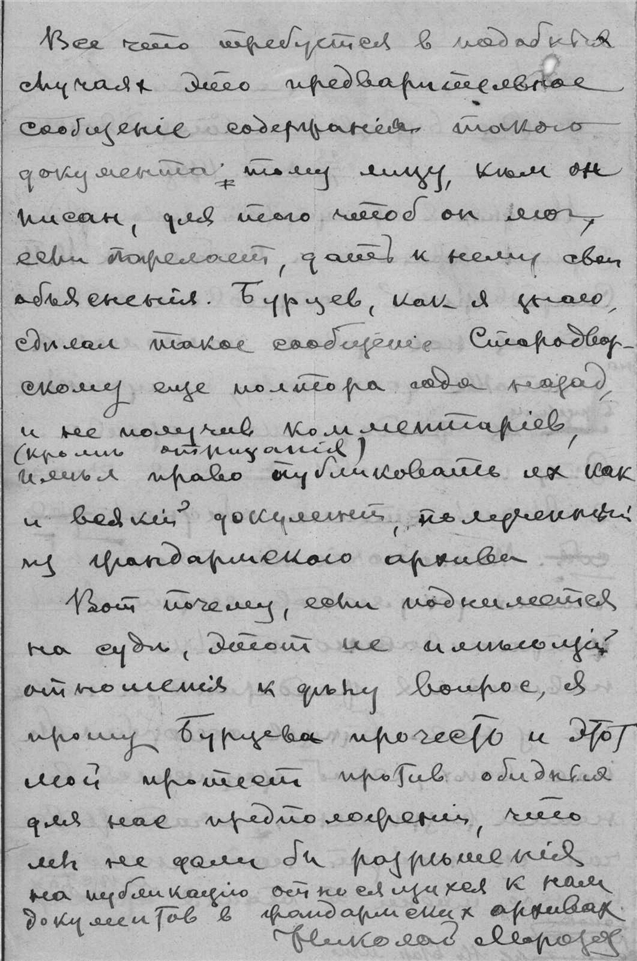 Все что требуется в подобныхъ
случаях это предварительное
сообщеніе содержанія такого
документа тому лицу, кѣм он
писан, для того чтоб он мог,
если пожелает, дать к нему свои
объясненія. Бурцев, как я знаю,
сдѣлал такое сообщеніе Стародвор-
скому еще полтора года назад,
и не получив комментаріев,
(кромѣ отрицанія)
имѣл право публиковать их как
и всякій документ, полученный
из жандармского архива
Вот почему, если поднимется
на судѣ, этот не имѣющій
отношенія к дѣлу вопрос, я
прошу Бурцева прочесть и этот
мой протест против обидныхъ
для нас предположеній, что
мы не дали бы разрѣшенія
на публикацію относящихся к нам
документов в жандармских архивах.
Николай Морозов